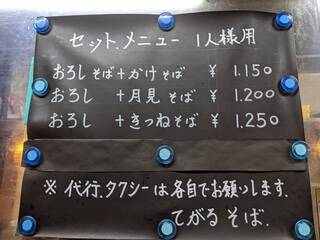 セット.メニュー 1人様用
おろしそば+かけそば ¥ 1.150
おろし +月見そば ¥ 1.200
おろし +きつねそば ¥ 1.250
※代行.タクシーは各自でお願いします.
てがるそば.